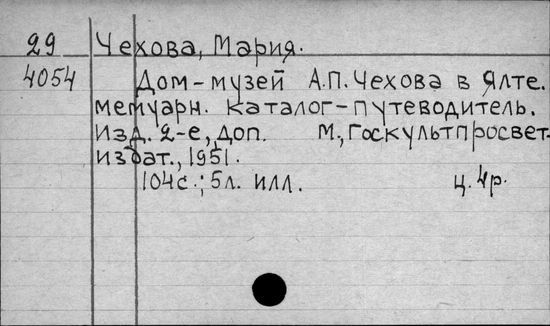 29 Чехова, Мария.
4054 Дом-музей А.П. Чехова в Ялте.
мемуарн. каталог-путеводитель.
Изд. 2-е, доп. М., Госкультпросвет-
издат., 1951.
104с.; 5л. илл. ц. 4р.